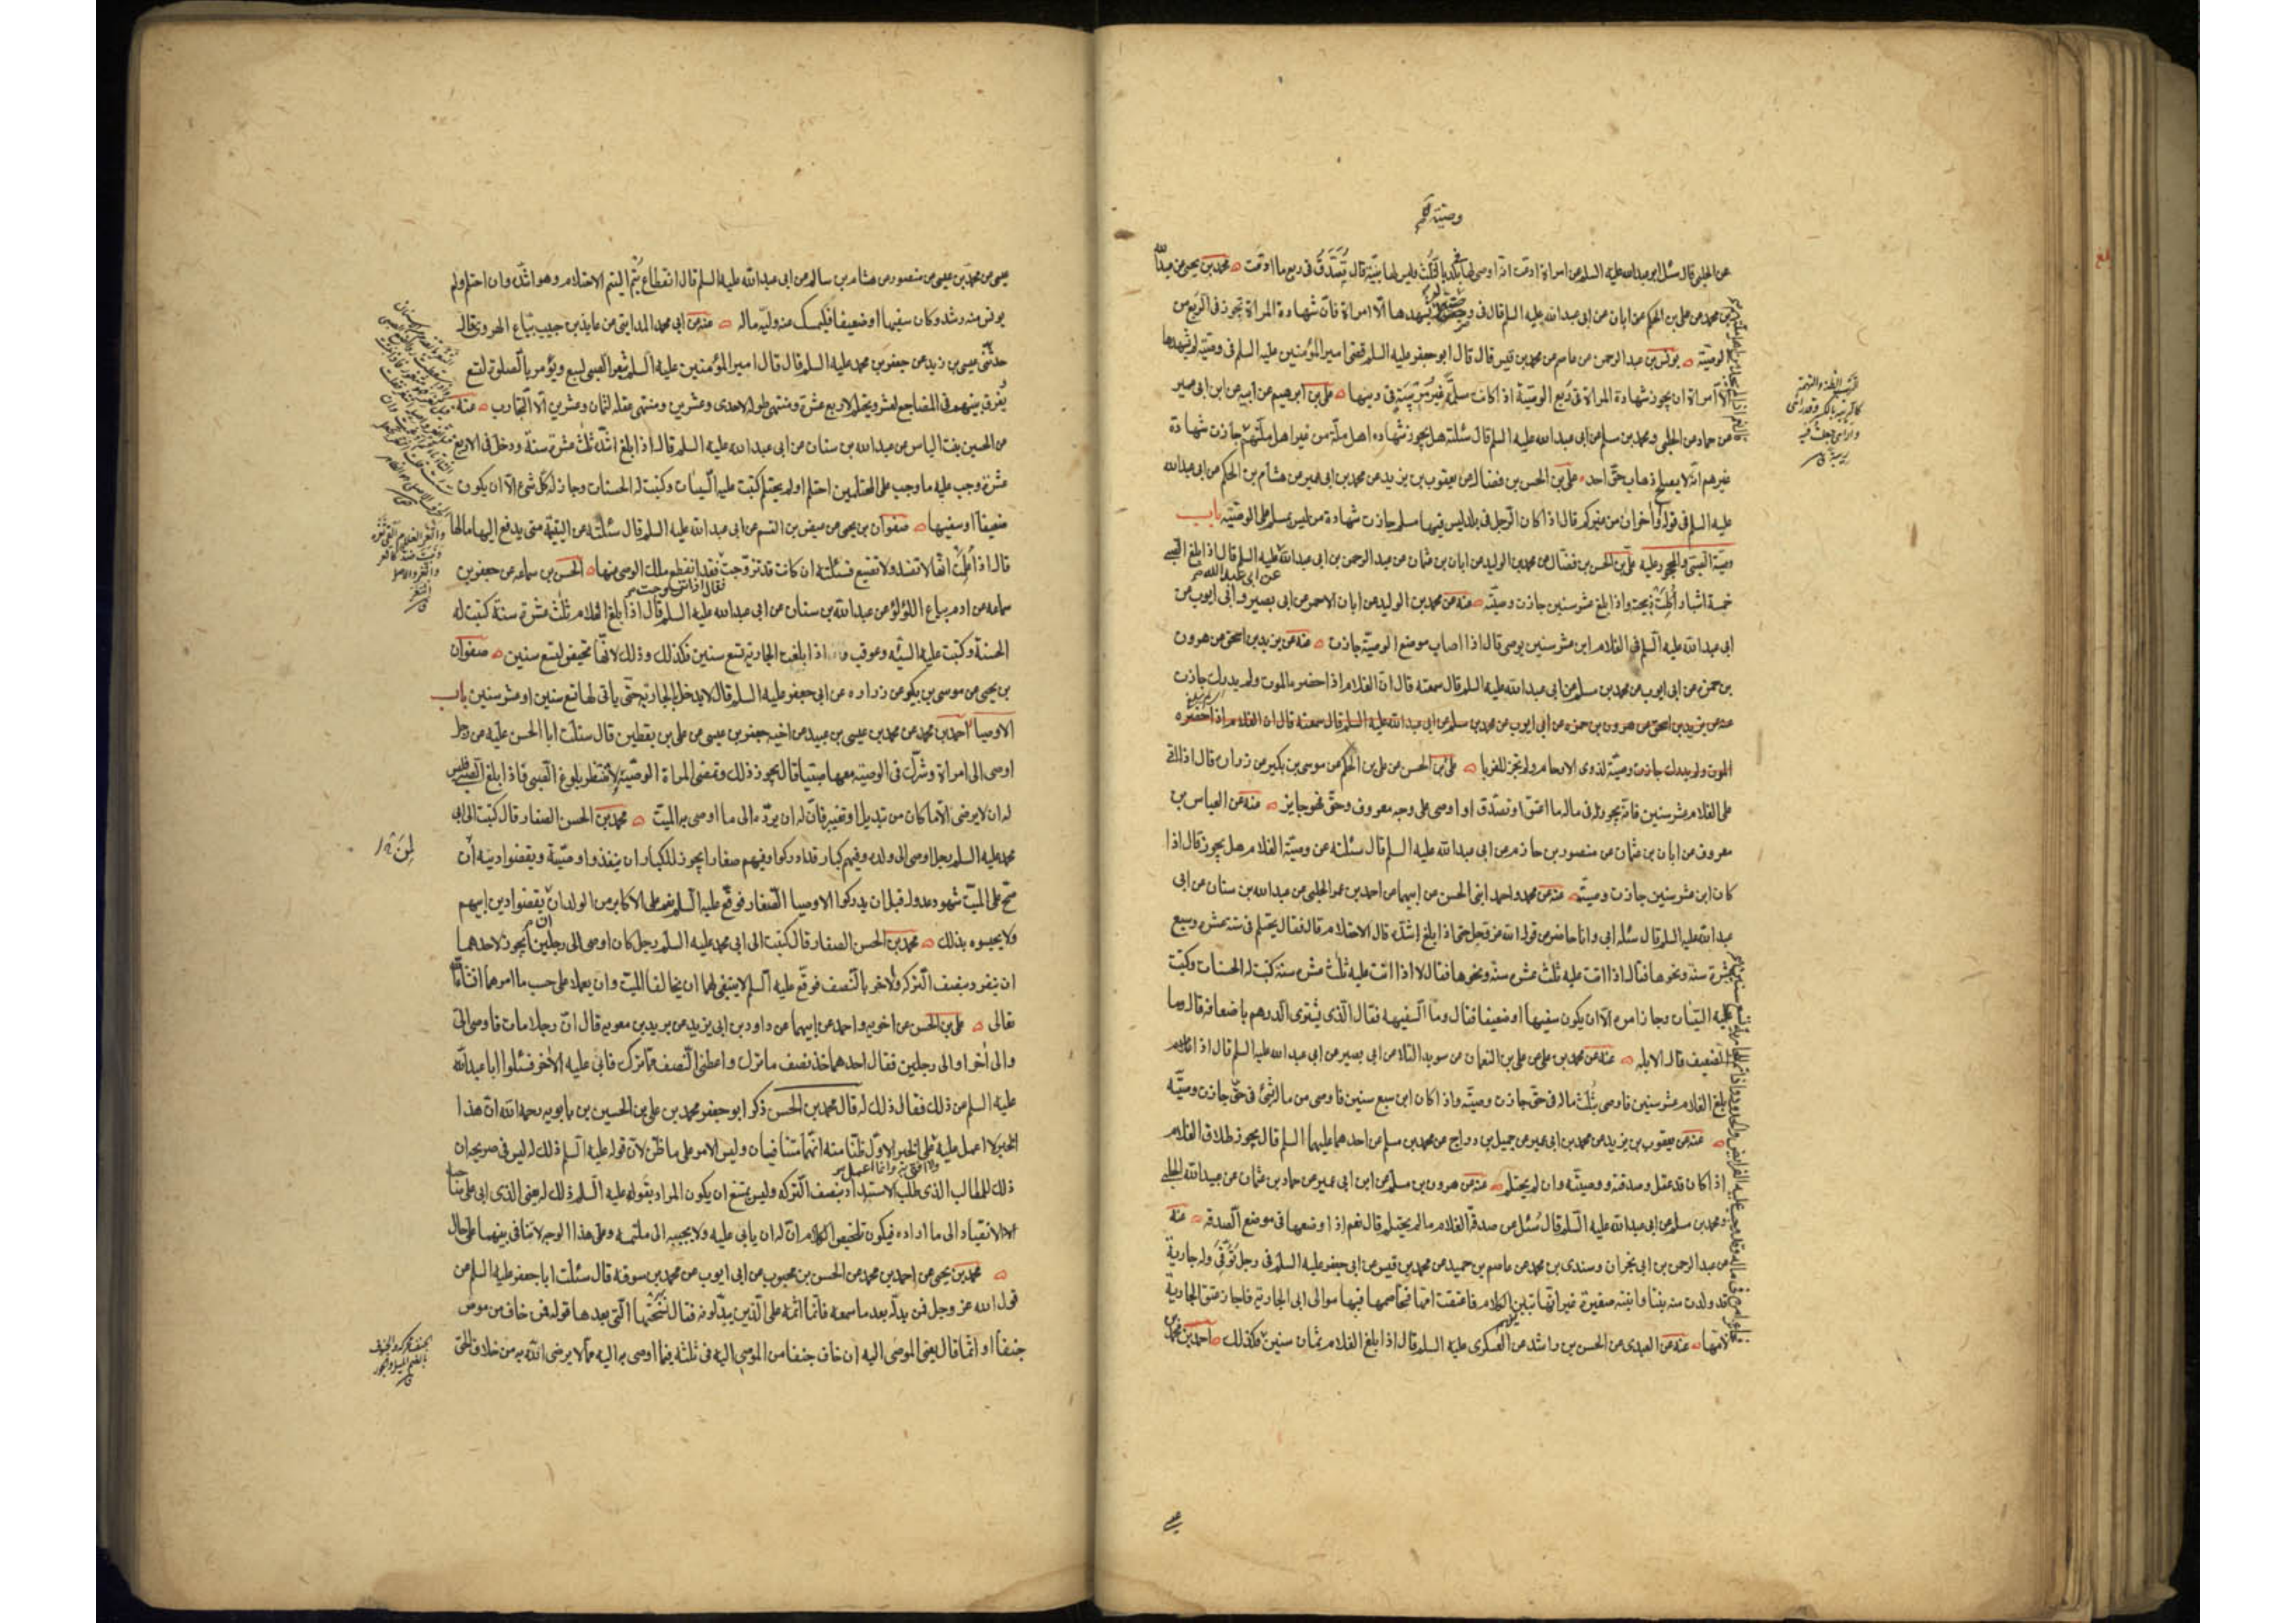 وصيته
عن الحلبي قال سئل ابو عبد الله عليه السلم عن امراة ادعت انه اوصى لها في بلد بالثلث وليس لها بينة قال تصدق في ربع ما ادعت محمد بن يحيى عن عبد الله
بن محمد عن علي بن الحكم عن ابان عن ابي عبد الله عليه السلم انه قال في وصية لم يشهدها الا امراة فان شهادة المراة تجوز في الربع من
الوصية يونس بن عبد الرحمن عن عاصم عن محمد بن قيس قال قال ابو جعفر عليه السلم قضى امير المؤمنين عليه السلم في وصية لم يشهدها
الا امراة ان يجوز شهادة المراة في ربع الوصية اذا كانت مسلمة غير مريبة في دينها علي بن ابرهيم عن ابيه عن ابن ابي عمير
عن حماد عن الحلبي ومحمد بن مسلم عن ابي عبد الله عليه السلم قال سئلته هل يجوز شهادة اهل ملة من غير اهل ملتهم جازت شهادة
غيرهم انه لا يصلح ذهاب حق احد علي بن الحسن بن فضال عن يعقوب بن يزيد عن محمد بن ابي عمير عن هشام بن الحكم عن ابي عبد الله
عليه السلم في قوله او اخران من غيركم قال اذا كان الرجل في بلد ليس فيها مسلم جازت شهادة من ليس بمسلم على الوصية باب
وصية الصبي والمحجور عليه علي بن الحسن بن فضال عن محمد بن الوليد عن ابان بن عثمان عن عبد الرحمن بن ابي عبد الله عن ابي عبد الله عليه السلم قال اذا بلغ الصبي
خمسة اشبار اكلت ذبيحته واذا بلغ عشر سنين جازت وصيته عنه عن محمد بن الوليد عن ابان الاحمر عن ابي بصير وابي ايوب عن
ابي عبد الله عليه السلم في الغلام ابن عشر سنين يوصي قال اذا اصاب موضع الوصية جازت عنه عن يزيد بن اسحق عن هرون
بن حمزة عن ابي ايوب عن محمد بن مسلم عن ابي عبد الله عليه السلم قال سمعته قال ان الغلام اذا حضره الموت ولم يدرك جازت
عنه عن يزيد بن اسحق عن هرون بن حمزه عن ابي ايوب عن محمد بن مسلم عن ابي عبد الله عليه السلم قال سمعته قال ان الغلام اذا حضره
الموت ولم يدرك جازت وصيته لذوي الارحام ولم تجز للغربا علي بن الحسن عن علي بن الحكم عن موسى بن بكير عن زرارة قال اذا اتى
على الغلام عشر سنين فانه يجوز له في ماله ما اعتق او تصدق او اوصى على وجه معروف وحق فهو جايز عنه عن العباس بن
معروف عن ابان بن عثمان عن منصور بن حازم عن ابي عبد الله عليه السلم قال سئلته عن وصية الغلام هل يجوز قال اذا
كان ابن عشر سنين جازت وصيته عنه عن محمد واحمد ابني الحسن عن ابيهما عن احمد بن عمر الحلبي عن عبد الله بن سنان عن ابي
عبد الله عليه السلم قال سئله ابي وانا حاضر عن قول الله عز وجل حتى اذا بلغ اشده قال الاحتلام قال فقال يحتلم في ستة عشر وسبع
عشرة سنة ونحوها فقال اذا اتت عليه ثلث عشرة سنة ونحوها فقال لا اذا اتت عليه ثلث عشرة سنة كتبت له الحسنات وكتبت
عليه السيئات وجاز امره الا ان يكون سفيها او ضعيفا فقال وما السفيه فقال الذي يشتري الدرهم باضعافه قال وما
الضعيف قال الابله عنه عن محمد بن علي عن علي بن النعمان عن سويد القلا عن ابي بصير عن ابي عبد الله عليه السلم قال اذا
بلغ الغلام عشر سنين فاوصى بثلث ماله في حق جازت وصيته واذا كان ابن سبع سنين فاوصى من ماله بشئ في حق جازت وصيته
عنه عن يعقوب بن يزيد عن محمد بن ابي عمير عن جميل بن دراج عن محمد بن مسلم عن احدهما عليهما السلم قال يجوز طلاق الغلام
اذا كان قد عقل وصدقته ووصيته وان لم يحتلم عنه عن هرون بن مسلم عن ابن ابي عمير عن حماد بن عثمان عن عبيد الله الحلبي
ومحمد بن مسلم عن ابي عبد الله عليه السلم قال سئل عن صدقة الغلام ما لم يحتلم قال نعم اذا وضعها في موضع الصدقة عنه
عن عبد الرحمن بن ابي نجران وسندي بن محمد عن عاصم بن حميد عن محمد بن قيس عن ابي جعفر عليه السلم في رجل توفي وله جارية
قد ولدت منه بنتا وابنته صغيرة غير انها تبين الكلام فاعتقت امها فخاصمها فيها موالي ابي الجارية فاجاز عتق الجارية
لامها عنه عن العبدي عن الحسن بن راشد عن العسكري عليه السلم قال اذا بلغ الغلام ثمان سنين فكذلك احمد بن محمد بن
عيسى عن محمد بن عيسى عن منصور عن هشام بن سالم عن ابي عبد الله عليه السلم قال انقطاع يتم اليتيم الاحتلام وهو اشده وان احتلم ولم
يونس منه رشد وكان سفيها او ضعيفا فليمسك عنه وليه ماله عنه عن ابي محمد المدايني عن عايذ بن حبيب بياع الهروي قال
حدثني عيسى بن زيد عن جعفر بن محمد عليه السلم قال قال امير المؤمنين عليه السلم يثغر الصبي لسبع ويؤمر بالصلوة لتسع
يفرق بينهم في المضاجع لعشر ويحتلم لاربع عشرة ومنتهى طوله لاحدى وعشرين ومنتهى عقله لثمان وعشرين الا التجارب عنه
عن الحسين بنت الياس عن عبد الله بن سنان عن ابي عبد الله عليه السلم قال اذا بلغ اشده ثلث عشرة سنة ودخل في الاربع
عشرة وجب عليه ما وجب على المحتلمين احتلم او لم يحتلم كتبت عليه السيئات وكتبت له الحسنات وجاز له كل شئ الا ان يكون
ضعيفا او سفيها صفوان بن يحيى عن عيص بن القسم عن ابي عبد الله عليه السلم قال سئلته عن اليتيمة متى يدفع اليها مالها
قال اذا علمت انها لا تفسد ولا تضيع فسئلته ان كانت قد تزوجت فقال اذا تزوجت فقد انقطع ملك الوصي عنها الحسن بن سماعه عن جعفر بن
سماعه عن ادم بياع اللؤلؤ عن عبد الله بن سنان عن ابي عبد الله عليه السلم قال اذا بلغ الغلام ثلث عشرة سنة كتبت له
الحسنة وكتبت عليه السيئه وعوقب واذا بلغت الجارية تسع سنين فكذلك وذلك لانها تحيض لتسع سنين صفوان
بن يحيى عن موسى بن بكر عن زراره عن ابي جعفر عليه السلم قال لا يدخل بالجارية حتى ياتي لها تسع سنين او عشر سنين باب
الاوصيا احمد بن محمد عن محمد بن عيسى بن عبيد عن اخيه جعفر بن عيسى عن علي بن يقطين قال سئلت ابا الحسن عليه عن رجل
اوصى الى امراة وشرك في الوصية معها صبيا قال يجوز ذلك وتمضي المراة الوصية ولا تنتظر بلوغ الصبي فاذا بلغ الصبي فليس
له ان لا يرضى الا ما كان من تبديل او تغيير فان له ان يرده الى ما اوصى به الميت محمد بن الحسن الصفار قال كتبت الى ابي
محمد عليه السلم رجل اوصى الى ولده وفيهم كبار قد ادركوا وفيهم صغار ايجوز للكبار ان ينفذوا وصيته ويقضوا دينه لمن
صح على الميت شهود عدول قبل ان يدركوا الاوصيا الصغار فوقع عليه السلم نعم على الاكابر من الولد ان يقضوا دين ابيهم
ولا يحبسوه بذلك محمد بن الحسن الصفار قال كتبت الى ابي محمد عليه السلم رجل كان اوصى الى رجلين ايجوز لاحدهما
ان ينفرد بنصف التركه والاخر بالنصف فوقع عليه السلم لا ينبغي لهما ان يخالفا الميت وان يعملا على حسب ما امرهما ان شاء الله
تعالى علي بن الحسن عن اخويه واحمد عن ابيهما عن داود بن ابي يزيد عن بريد بن معويه قال ان رجلا مات فاوصى الي
والى اخر او الى رجلين فقال احدهما خذ نصف ما ترك واعطني النصف مما ترك فابى عليه الاخر فسئلوا ابا عبد الله
عليه السلم عن ذلك فقال ذلك له قال محمد بن الحسن ذكر ابو جعفر محمد بن علي بن الحسين بن بابويه رحمه الله ان هذا
الخبر لا اعمل عليه ولا افتي به وانما اعمل على الخبر الاول ظنا منه انهما متنافيان وليس الامر على ما ظن لان قوله عليه السلم ذلك له ليس في صريحه ان
ذلك للطالب الذي طلب الاستبداد بنصف التركه وليس يمتنع ان يكون المراد بقوله عليه السلم ذلك له يعني الذي ابى على صاحبه
الانقياد الى ما اراده فيكون تلخيص الكلام ان له ان يابى عليه ولا يجيبه الى ملتمسه وعلى هذا الوجه لا تنافي بينهما على حال
محمد بن يحيى عن احمد بن محمد عن الحسن بن محبوب عن ابي ايوب عن محمد بن سوقه قال سئلت ابا جعفر عليه السلم عن
قول الله عز وجل فمن بدله بعد ما سمعه فانما اثمه على الذين يبدلونه فقال نسختها التي بعدها قوله فمن خاف من موص
جنفا او اثما قال يعني الموصى اليه ان خاف جنفا من الموصي اليه في ثلثه فيما اوصى به اليه مما لا يرضى الله به من خلاف الحق